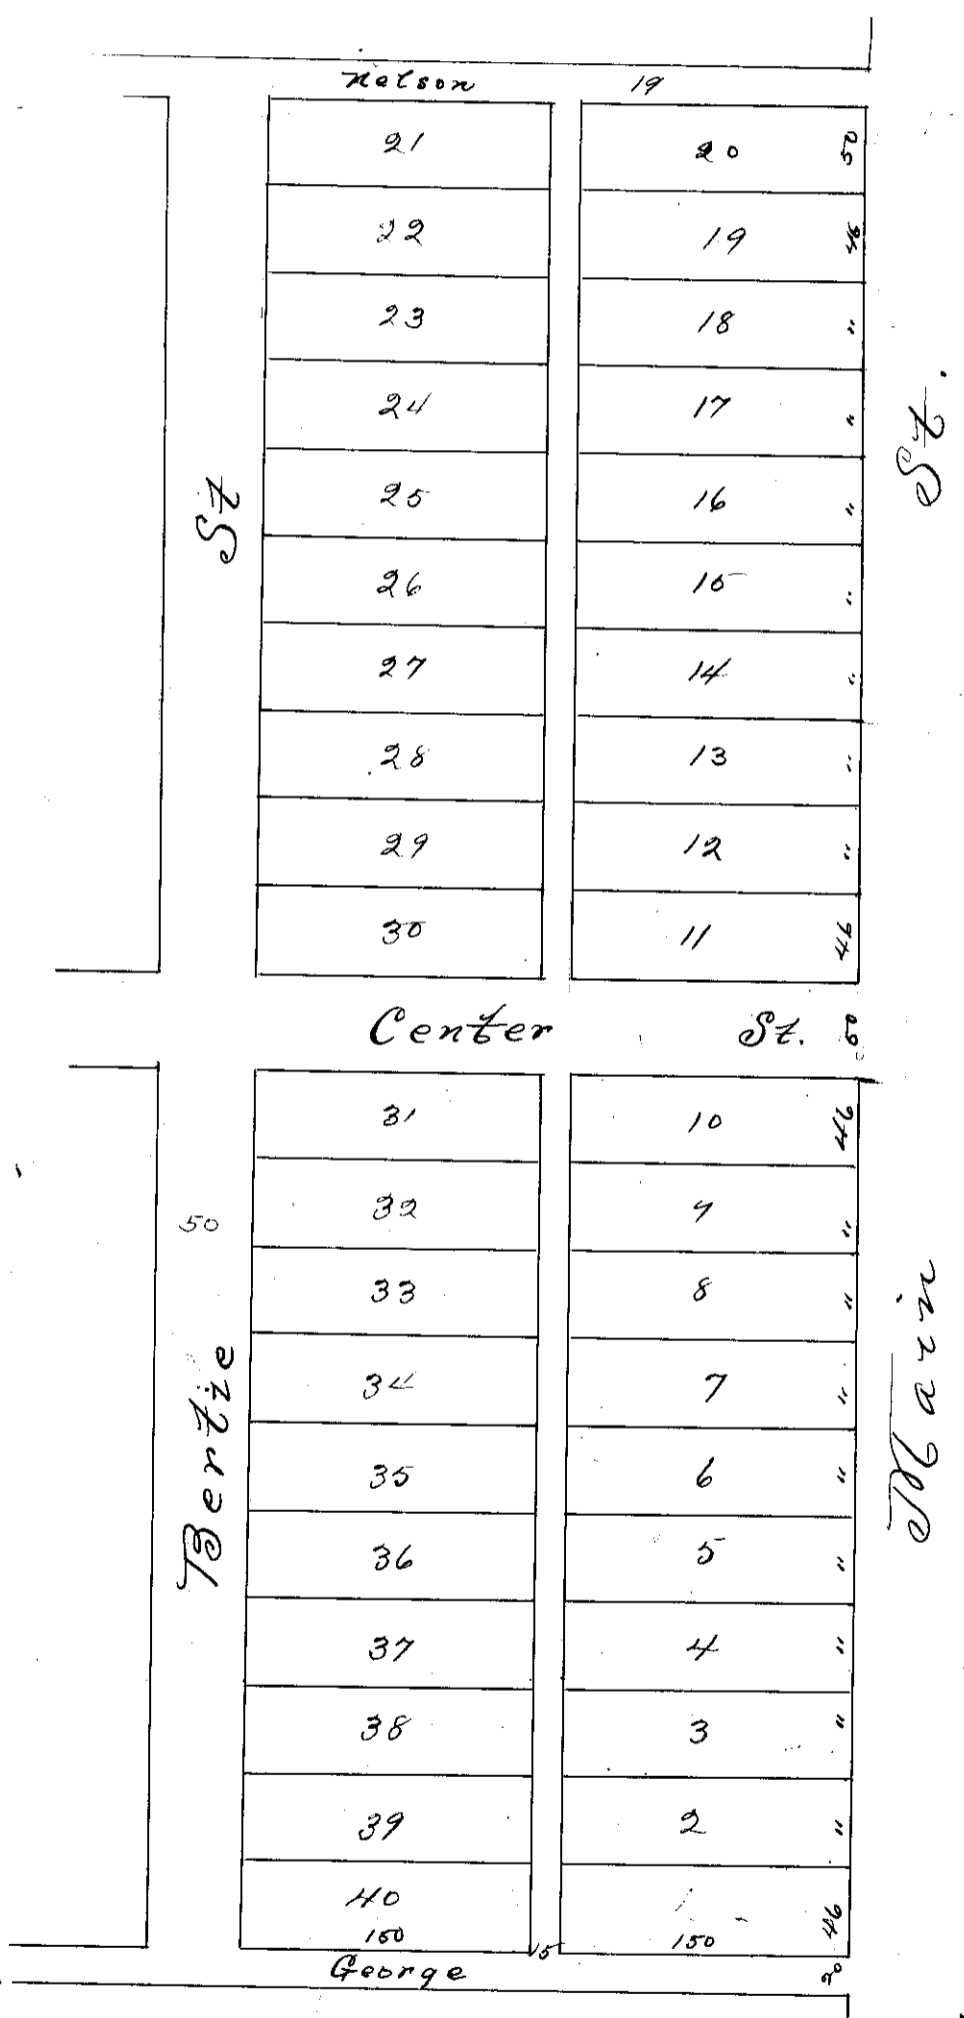 Nelson 19
21 20 50
22 19 46
23 18 "
24 17 "
25 16 "
26 15 "
27 14 "
28 13 "
29 12 "
30 11 46
St
St.
Center St. 50
31 10 46
32 9 "
33 8 "
34 7 "
35 6 "
36 5 "
37 4 "
38 3 "
39 2 "
40 1 46
150 15 150
50
Bertie
Main
George 20